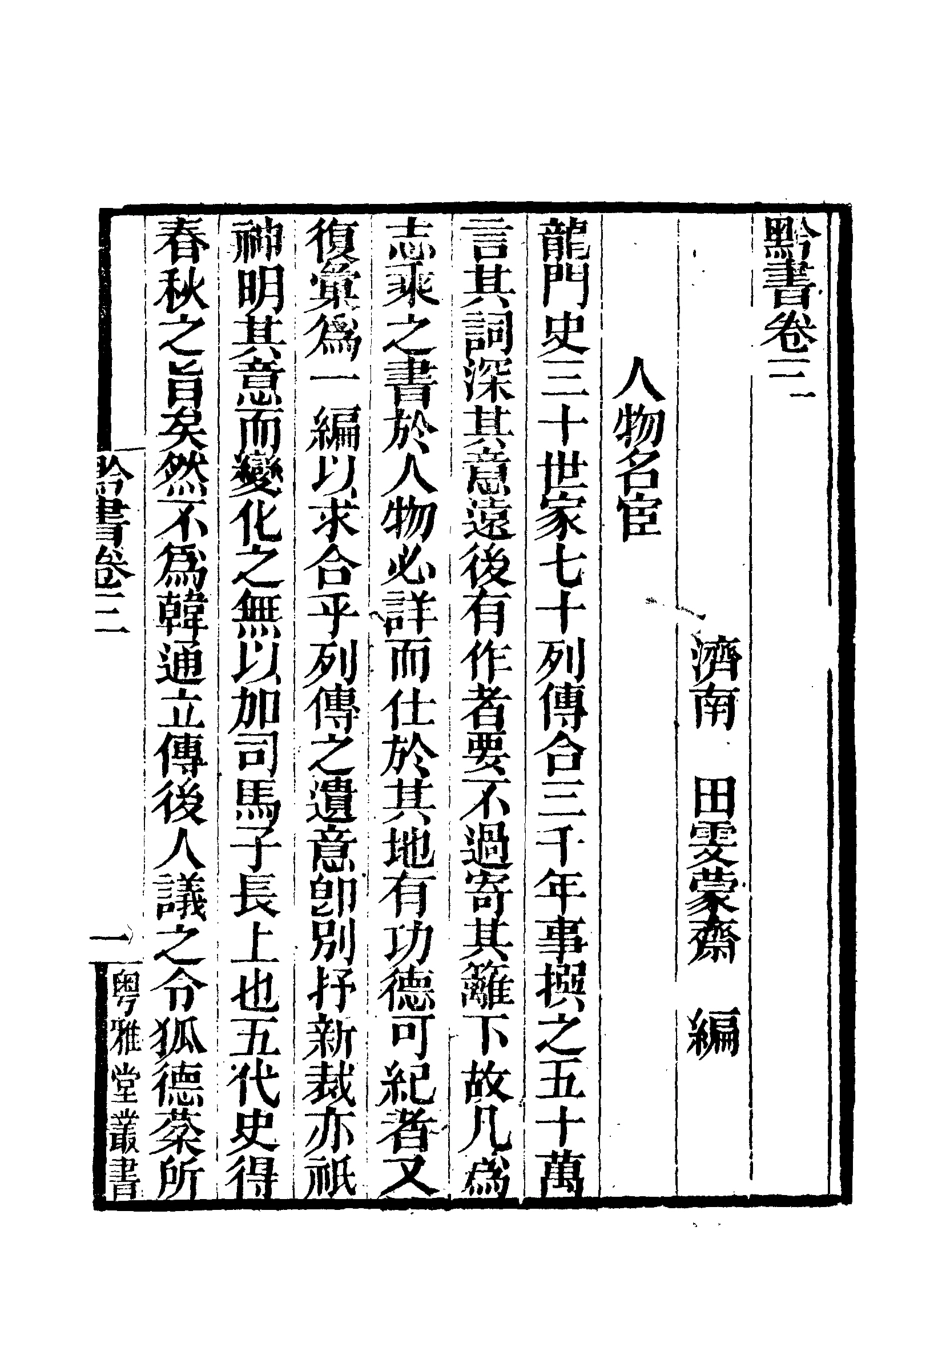 黔書卷三
濟南　田雯蒙齋　編
人物名宦
龍門史三十世家七十列傳合三千年事撰之五十萬
言其詞深其意遠後有作者要不過寄其籬下故凡爲
志乘之書於人物必詳而仕於其地有功德可紀者又
復彙爲一編以求合乎列傳之遺意卽別抒新裁亦祇
神明其意而變化之無以加司馬子長上也五代史得
春秋之旨矣然不爲韓通立傳後人議之令狐德棻所
黔書卷三
一
粵雅堂叢書